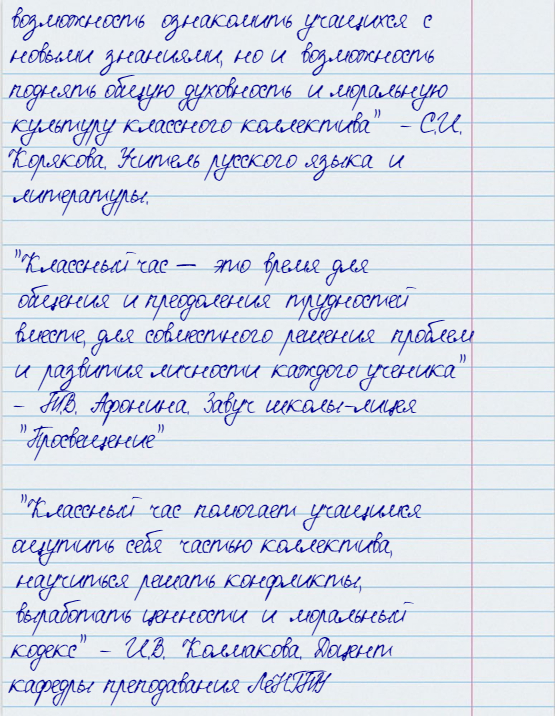 возможность ознакомить учащихся с
новыми знаниями, но и возможность
поднять общую духовность и моральную
культуру классного коллектива" - С.И.
Корякова. Учитель русского языка и
литературы.
"Классный час — это время для
общения и преодоления трудностей
вместе, для совместного решения проблем
и развития личности каждого ученика"
- Т.В. Афонина. Завуч школы-лицея
"Просвещение"
"Классный час помогает учащимся
ощутить себя частью коллектива,
научиться решать конфликты,
выработать ценности и моральный
кодекс" - И.В. Колмакова. Доцент
кафедры преподавания